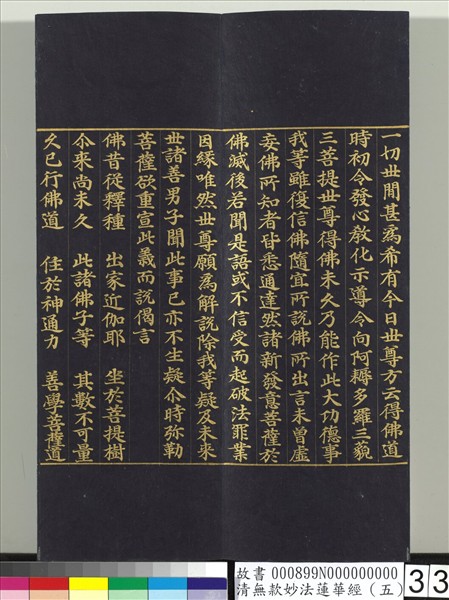 一切世間甚為希有今日世尊方云得佛道
時初令發心教化示導令向阿耨多羅三藐
三菩提世尊得佛未久乃能作此大功德事
我等雖復信佛隨宜所說佛所出言未曾虛
妄佛所知者皆悉通達然諸新發意菩薩於
佛滅後若聞是語或不信受而起破法罪業
因緣唯然世尊願為解說除我等疑及未來
世諸善男子聞此事已亦不生疑尒時弥勒
菩薩欲重宣此義而說偈言
佛昔從釋種 出家近伽耶 坐於菩提樹
尒來尚未久 此諸佛子等 其數不可量
久已行佛道 住於神通力 善學菩薩道
故書 000899N000000000
清無款妙法蓮華經（五）
33